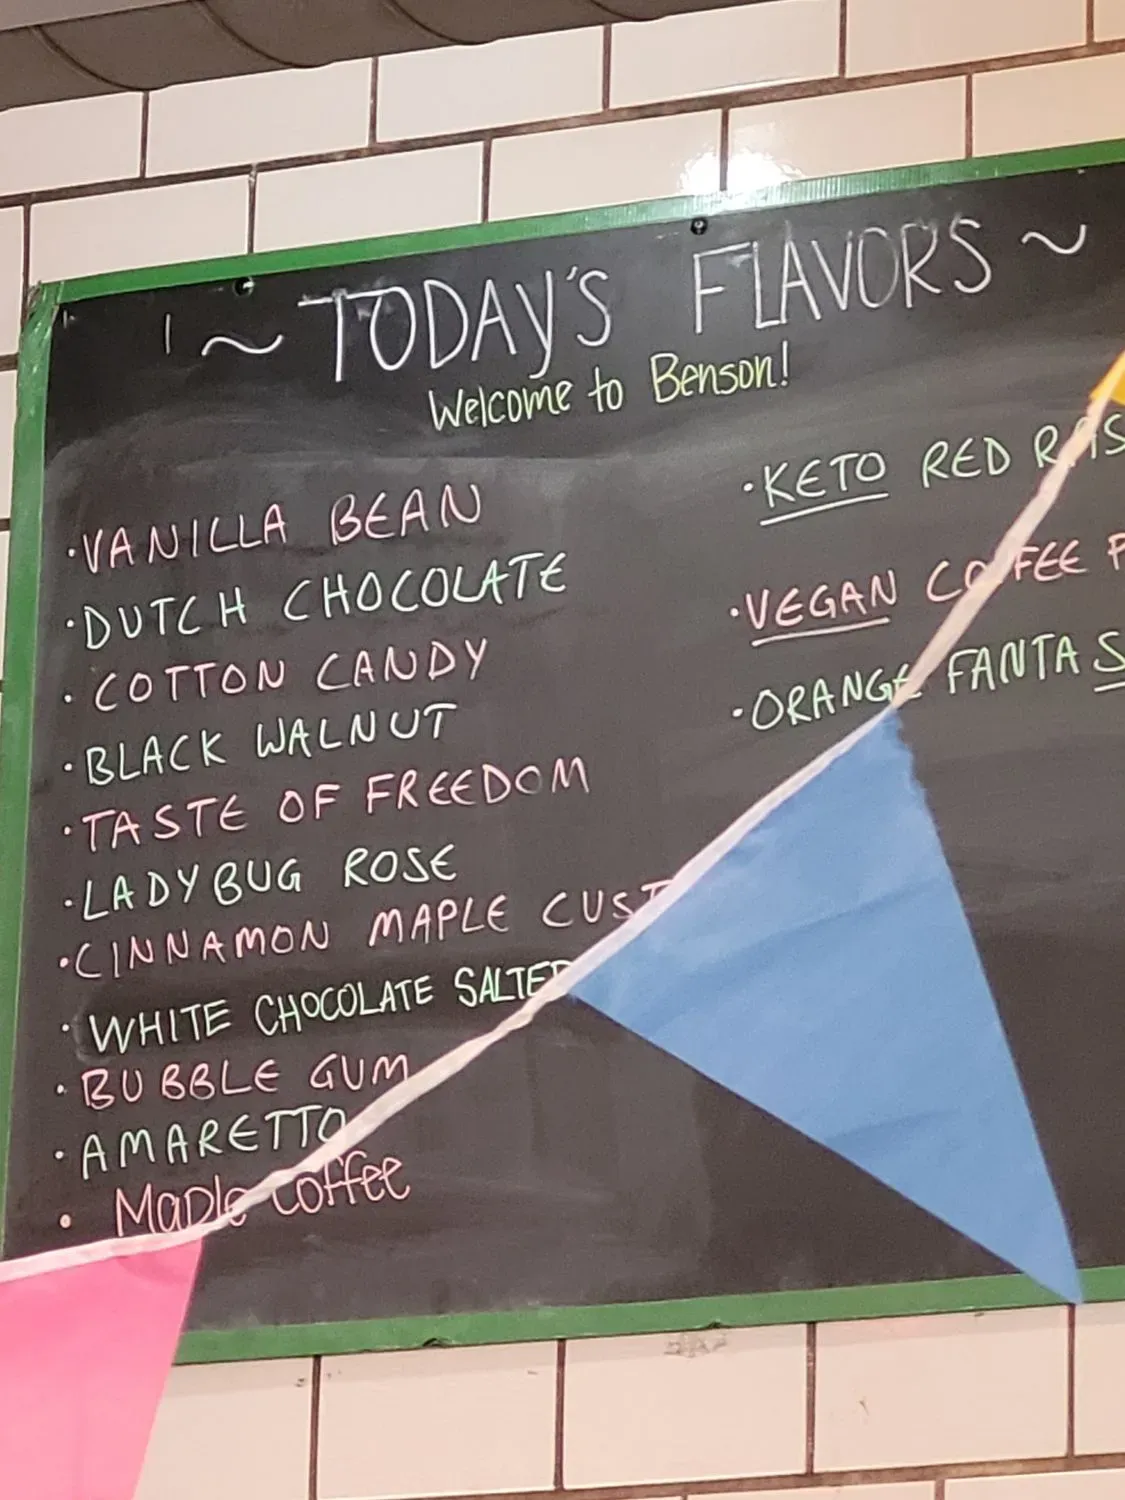 ~ TODAY'S FLAVORS ~
Welcome to Benson!
• VANILLA BEAN
• DUTCH CHOCOLATE
• COTTON CANDY
• BLACK WALNUT
• TASTE OF FREEDOM
• LADYBUG ROSE
• CINNAMON MAPLE CUST
• WHITE CHOCOLATE SALTED
• BUBBLE GUM
• AMARETTO
• Maple Coffee
• KETO RED RAS
• VEGAN COFFEE
• ORANGE FANTA S